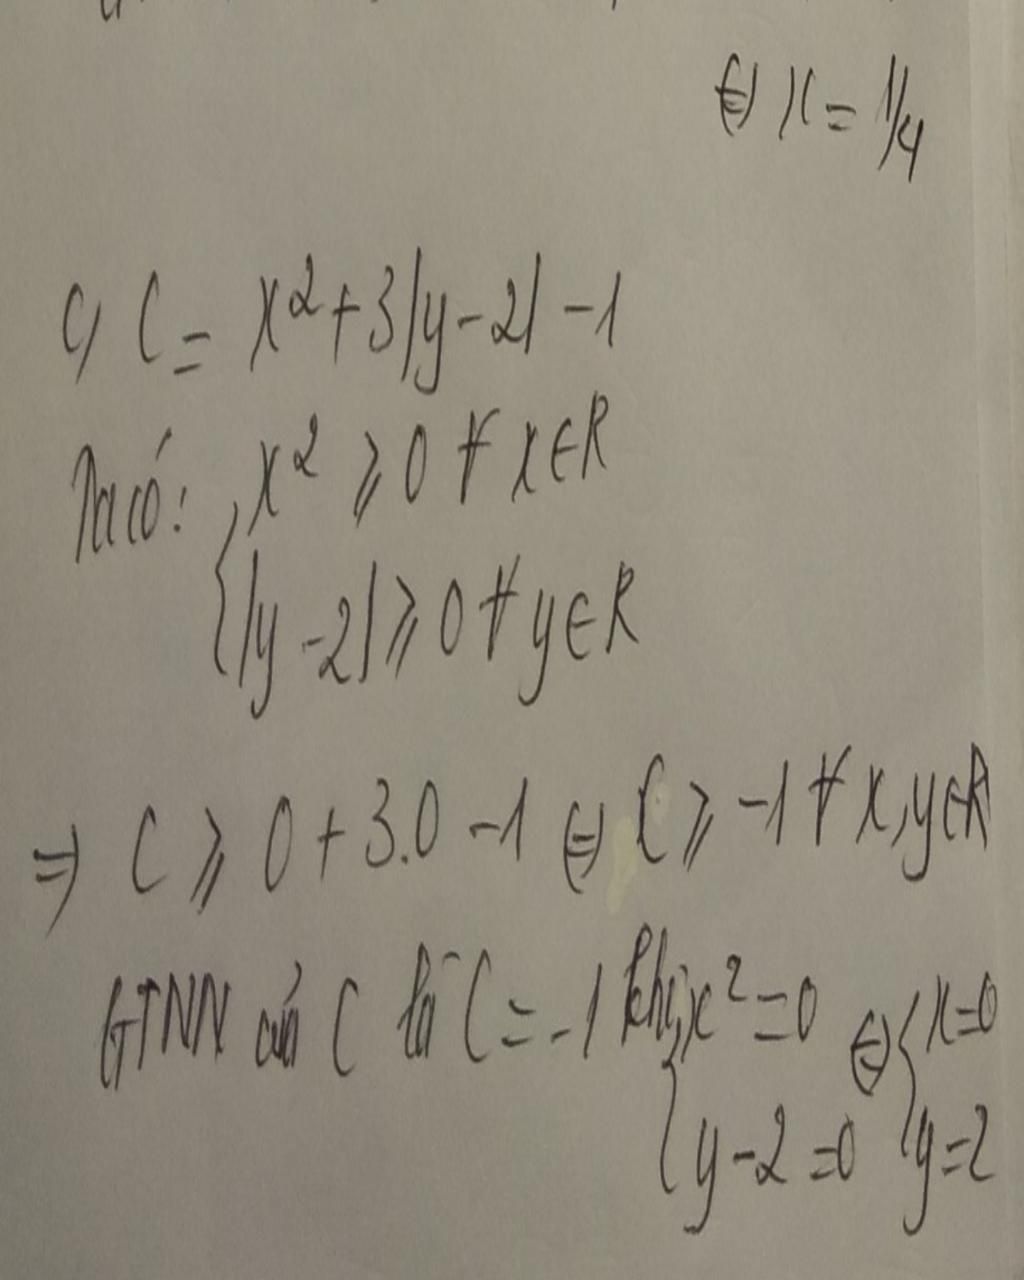 ⇔ x = 1/4
c, C = x² + 3|y-2| - 1
Ta có: { x² ≥ 0 ∀ x ∈ R
{ |y-2| ≥ 0 ∀ y ∈ R
⇒ C ≥ 0 + 3.0 - 1 ⇔ C ≥ -1 ∀ x, y ∈ R
GTNN của C là C = -1 khi { x² = 0 ⇔ { x = 0
{ y - 2 = 0 { y = 2